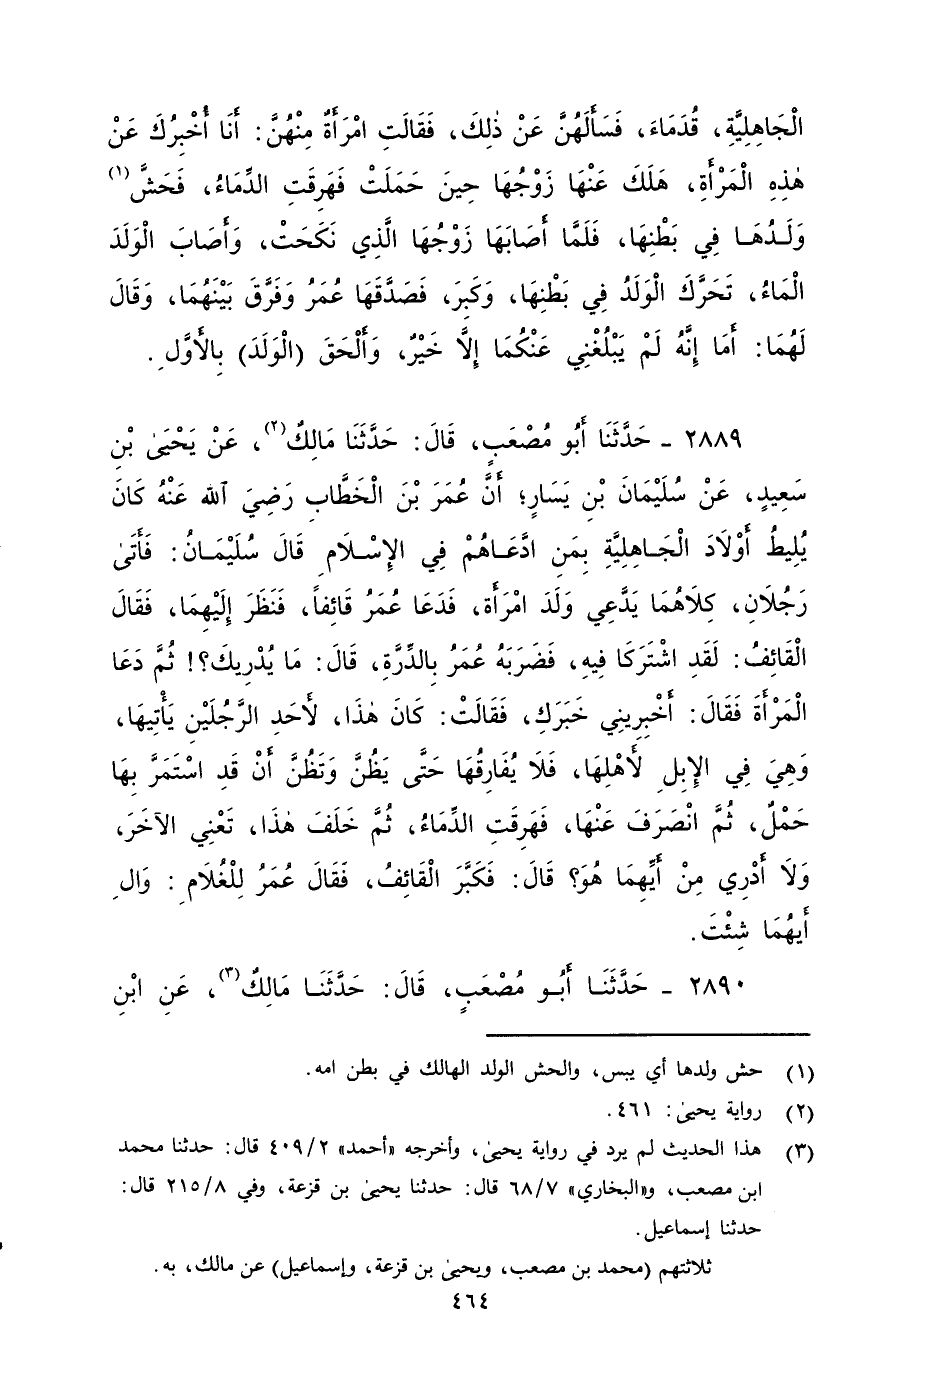 الْجَاهِلِيَّةِ، قُدَمَاءَ، فَسَأَلَهُنَّ عَنْ ذٰلِكَ، فَقَالَتِ امْرَأَةٌ مِنْهُنَّ: أَنَا أُخْبِرُكَ عَنْ
هٰذِهِ الْمَرْأَةِ، هَلَكَ عَنْهَا زَوْجُهَا حِينَ حَمَلَتْ فَهَرِقَتِ الدِّمَاءُ، فَحَشَّ(١)
وَلَدُهَا فِي بَطْنِهَا، فَلَمَّا أَصَابَهَا زَوْجُهَا الَّذِي نَكَحَتْ، وَأَصَابَ الْوَلَدَ
الْمَاءُ، تَحَرَّكَ الْوَلَدُ فِي بَطْنِهَا، وَكَبِرَ، فَصَدَّقَهَا عُمَرُ وَفَرَّقَ بَيْنَهُمَا، وَقَالَ
لَهُمَا: أَمَا إِنَّهُ لَمْ يَبْلُغْنِي عَنْكُمَا إِلَّا خَيْرٌ، وَأَلْحَقَ (الْوَلَدَ) بِالأَوَّلِ.
٢٨٨٩ - حَدَّثَنَا أَبُو مُصْعَبٍ، قَالَ: حَدَّثَنَا مَالِكٌ(٢)، عَنْ يَحْيَىٰ بْنِ
سَعِيدٍ، عَنْ سُلَيْمَانَ بْنِ يَسَارٍ؛ أَنَّ عُمَرَ بْنَ الْخَطَّابِ رَضِيَ اللهُ عَنْهُ كَانَ
يُلِيطُ أَوْلَادَ الْجَاهِلِيَّةِ بِمَنِ ادَّعَاهُمْ فِي الإِسْلَامِ قَالَ سُلَيْمَانُ: فَأَتَىٰ
رَجُلَانِ، كِلَاهُمَا يَدَّعِي وَلَدَ امْرَأَة، فَدَعَا عُمَرُ قَائِفاً، فَنَظَرَ إِلَيْهِمَا، فَقَالَ
الْقَائِفُ: لَقَدِ اشْتَرَكَا فِيهِ، فَضَرَبَهُ عُمَرُ بِالدِّرَّةِ، قَالَ: مَا يُدْرِيكَ؟! ثُمَّ دَعَا
الْمَرْأَةَ فَقَالَ: أَخْبِرِينِي خَبَرَكِ، فَقَالَتْ: كَانَ هٰذَا، لأَحَدِ الرَّجُلَيْنِ يَأْتِيهَا،
وَهِيَ فِي الإِبِلِ لأَهْلِهَا، فَلَا يُفَارِقُهَا حَتَّى يَظُنَّ وَتَظُنَّ أَنْ قَدِ اسْتَمَرَّ بِهَا
حَمْلٌ، ثُمَّ انْصَرَفَ عَنْهَا، فَهَرِقَتِ الدِّمَاءُ، ثُمَّ خَلَفَ هٰذَا، تَعْنِي الآخَرَ،
وَلَا أَدْرِي مِنْ أَيِّهِمَا هُوَ؟ قَالَ: فَكَبَّرَ الْقَائِفُ، فَقَالَ عُمَرُ لِلْغُلَامِ: وَالِ
أَيهُمَا شِئْتَ.
٢٨٩٠ - حَدَّثَنَا أَبُو مُصْعَبٍ، قَالَ: حَدَّثَنَا مَالِكٌ(٣)، عَنِ ابْنِ
(١) حش ولدها أي يبس، والحش الولد الهالك في بطن امه.
(٢) رواية يحيىٰ: ٤٦١.
(٣) هذا الحديث لم يرد في رواية يحيىٰ، وأخرجه «أحمد» ٤٠٩/٢ قال: حدثنا محمد
ابن مصعب، و«البخاري» ٦٨/٧ قال: حدثنا يحيىٰ بن قزعة، وفي ٢١٥/٨ قال:
حدثنا إسماعيل.
ثلاثتهم (محمد بن مصعب، ويحيىٰ بن قزعة، وإسماعيل) عن مالك، به.
٤٦٤